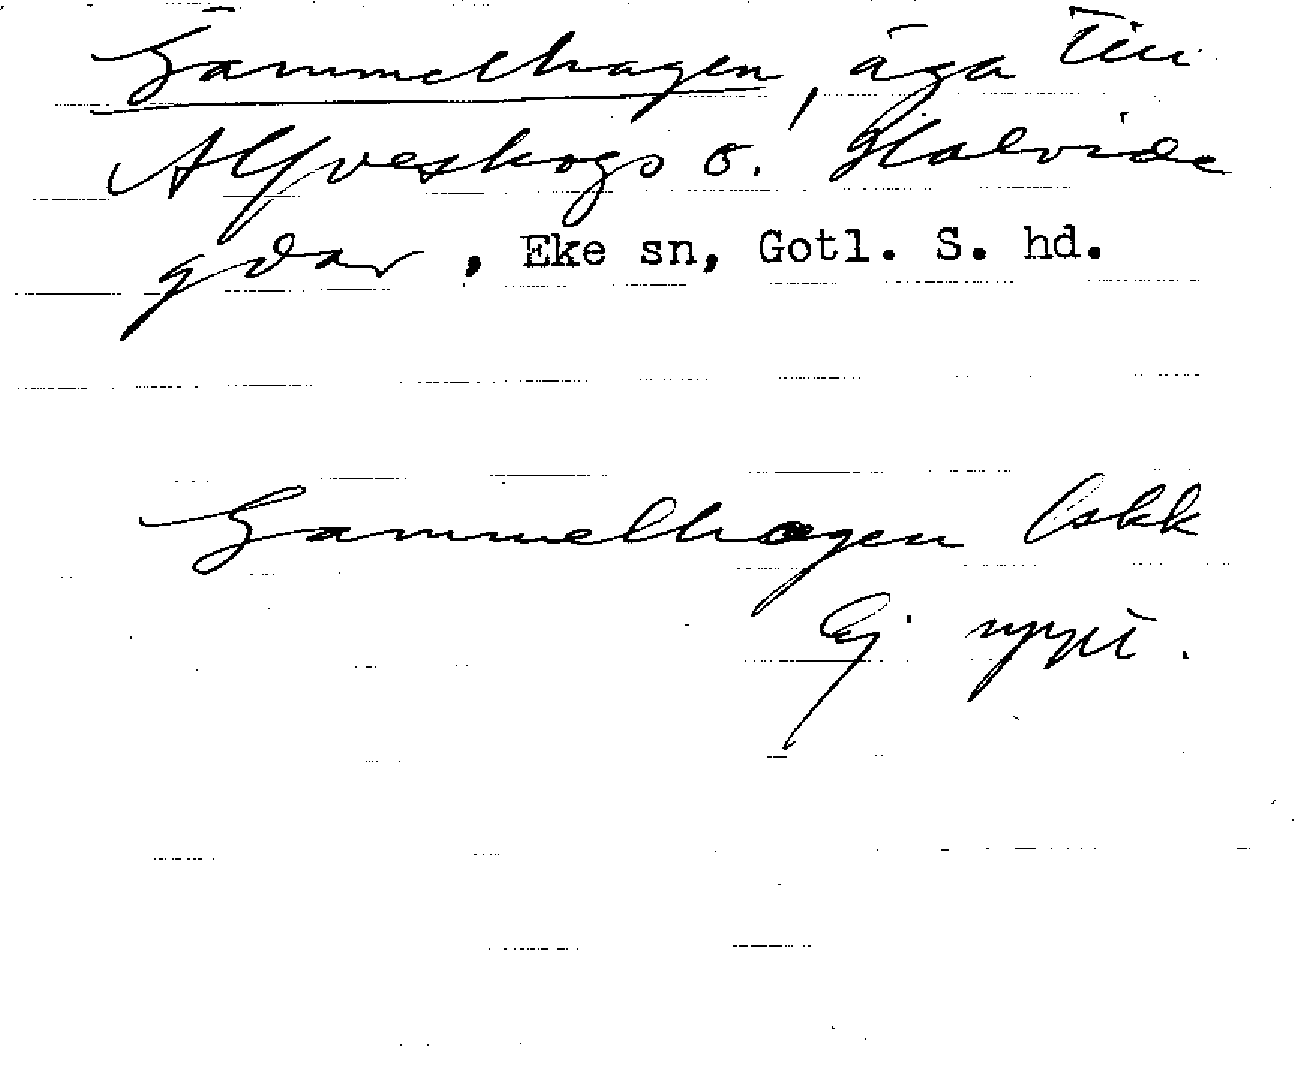 Gammelhagen, äga till
Alfveskogs o. Halvide
gdar, Eke sn, Gotl. S. hd.
Gammelhagen Lskk
Ej uppt.